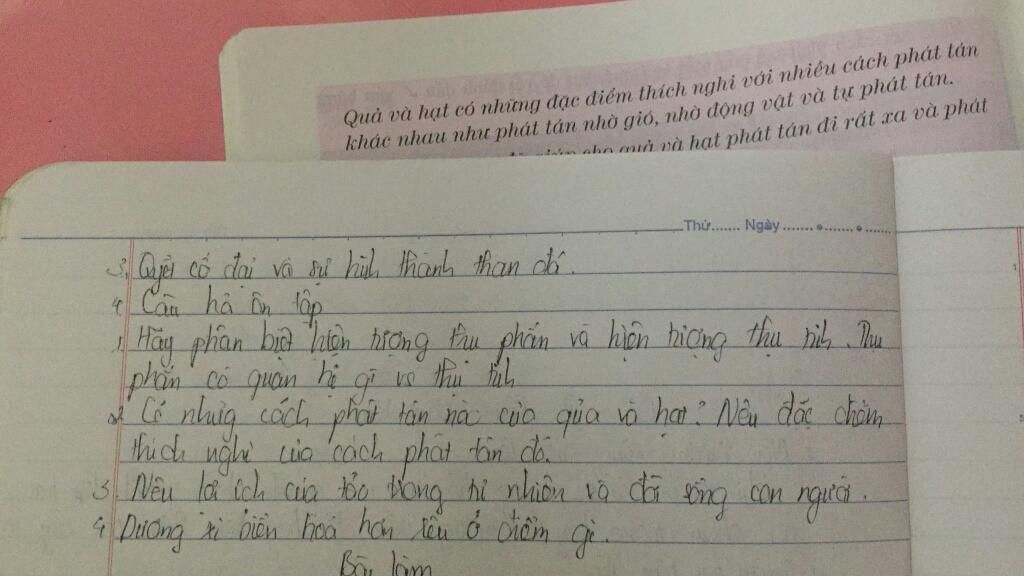 Quả và hạt có những đặc điểm thích nghi với nhiều cách phát tán
khác nhau như phát tán nhờ gió, nhờ động vật và tự phát tán.
giúp cho quả và hạt phát tán đi rất xa và phát
Thứ....... Ngày ........•........•........
3, Quyết cổ đại và sự hình thành than đá.
4 Câu hỏi ôn tập
1, Hãy phân biệt hiện tượng thụ phấn và hiện tượng thụ tinh. Thụ
phấn có quan hệ gì vs thụ tinh
2. Có những cách phát tán nào của qủa và hạt? Nêu đặc điểm
thích nghi của cách phát tán đó.
3. Nêu lợi ích của tảo trong tự nhiên và đời sống con người.
4 Dương xỉ tiến hoá hơn rêu ở điểm gì.
Bài làm